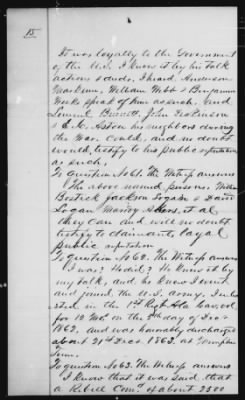 15
It was loyalty to the Government
of the U.S. I know it by his talk
actions & deeds. I heard Anderson
William Webb & Benjamin
Weeks speak of him as such. And
Lemuel Burnett, John Robinson
& E. K. Aston his neighbors during
the War could, and no doubt
would, testify to his public reputation
as such.
To question No 61. The Witness answers
The above named persons. William
Bostick Jackson Logan & Dan
Logan Manroy Akers, et al
they can and will no doubt
testify to claimants, loyal
public reputation
To question No 62. The Witness answers
I was? He did? He knew it by
my talk, and he knew I went
and joined the U.S. army. Enl
isted in the 1st Regt Ala Cavery
for 12 Mos. on the 5th day of Decr
1862, and was honorably discharged
about 21st Decr 1863. at Memphis
Tenn.
To question No 63. The Witness answers
I know that it was said that
a Rebell Com. of about 2500